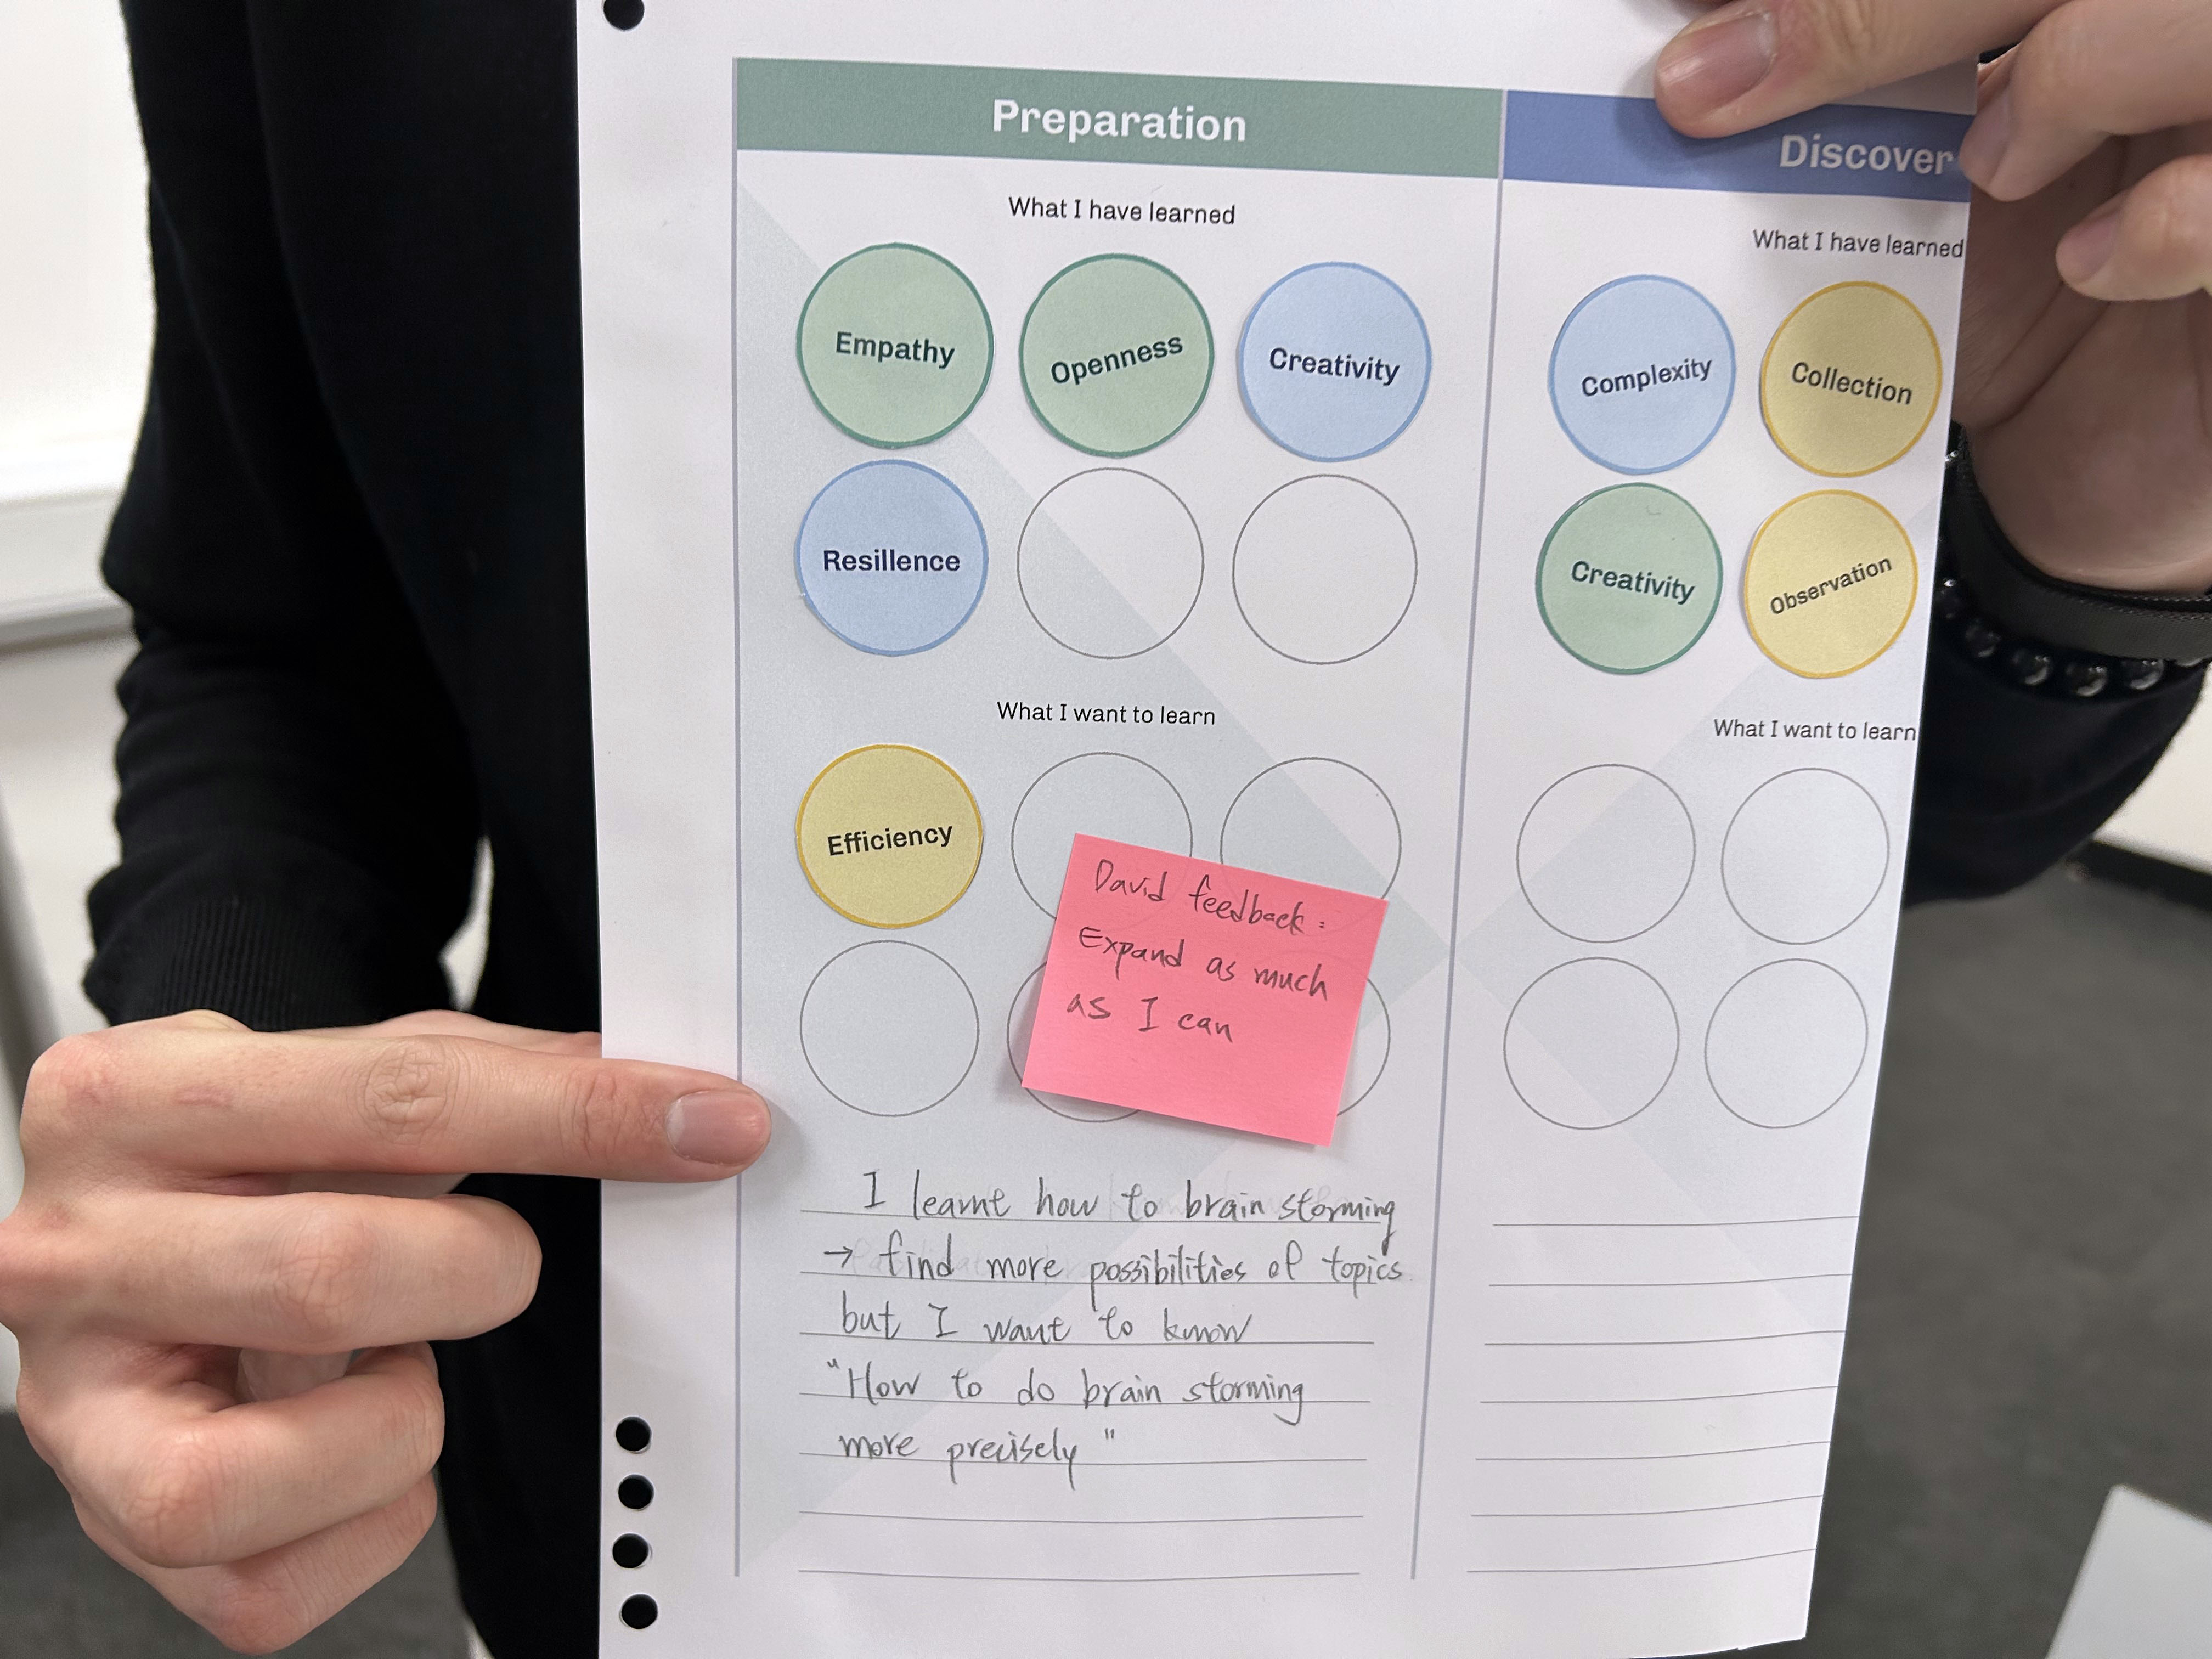 Preparation
What I have learned
Empathy
Openness
Creativity
Resillence
What I want to learn
Efficiency
David feedback:
Expand as much
as I can
I learnt how to brain storming
→ find more possibilities of topics
but I want to know
"How to do brain storming
more precisely"
Discover
What I have learned
Complexity
Collection
Creativity
Observation
What I want to learn